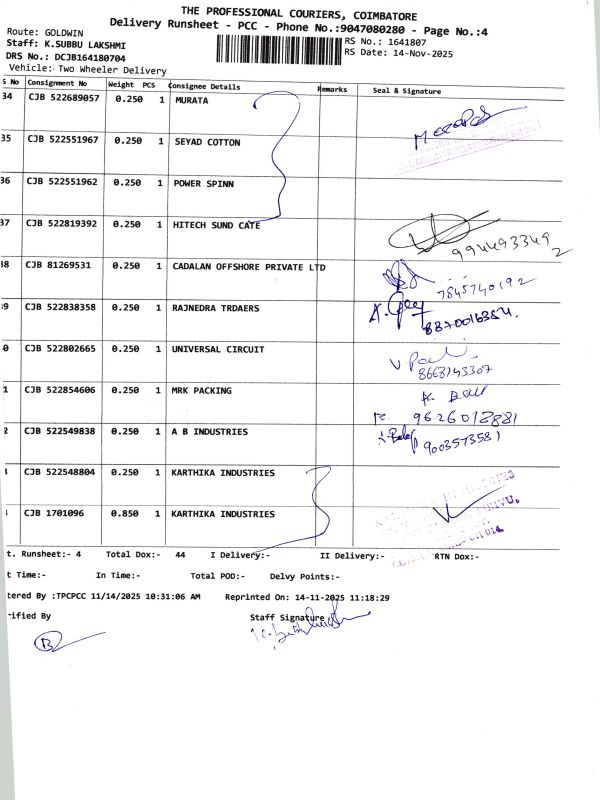 THE PROFESSIONAL COURIERS, COIMBATORE
Delivery Runsheet - PCC - Phone No.:9047080280 - Page No.:4
Route: GOLDWIN
RS No.: 1641807
Staff: K.SUBBU LAKSHMI
RS Date: 14-Nov-2025
DRS No.: DCJB164180704
Vehicle: Two Wheeler Delivery
S No Consignment No Weight PCS Consignee Details Remarks Seal & Signature
34 CJB 522689057 0.250 1 MURATA
35 CJB 522551967 0.250 1 SEYAD COTTON
36 CJB 522551962 0.250 1 POWER SPINN
37 CJB 522819392 0.250 1 HITECH SUND CATE
9944933492
38 CJB 81269531 0.250 1 CADALAN OFFSHORE PRIVATE LTD
7845740192
39 CJB 522838358 0.250 1 RAJNEDRA TRDAERS
8870016384.
0 CJB 522802665 0.250 1 UNIVERSAL CIRCUIT
8668143307
1 CJB 522854606 0.250 1 MRK PACKING
9626012881
2 CJB 522549838 0.250 1 A B INDUSTRIES
9003573581
3 CJB 522548804 0.250 1 KARTHIKA INDUSTRIES
CJB 1701096 0.850 1 KARTHIKA INDUSTRIES
t. Runsheet:- 4 Total Dox:- 44 I Delivery:- II Delivery:- RTN Dox:-
t Time:- In Time:- Total POD:- Delvy Points:-
tered By :TPCPCC 11/14/2025 10:31:06 AM Reprinted On: 14-11-2025 11:18:29
rified By Staff Signature
B